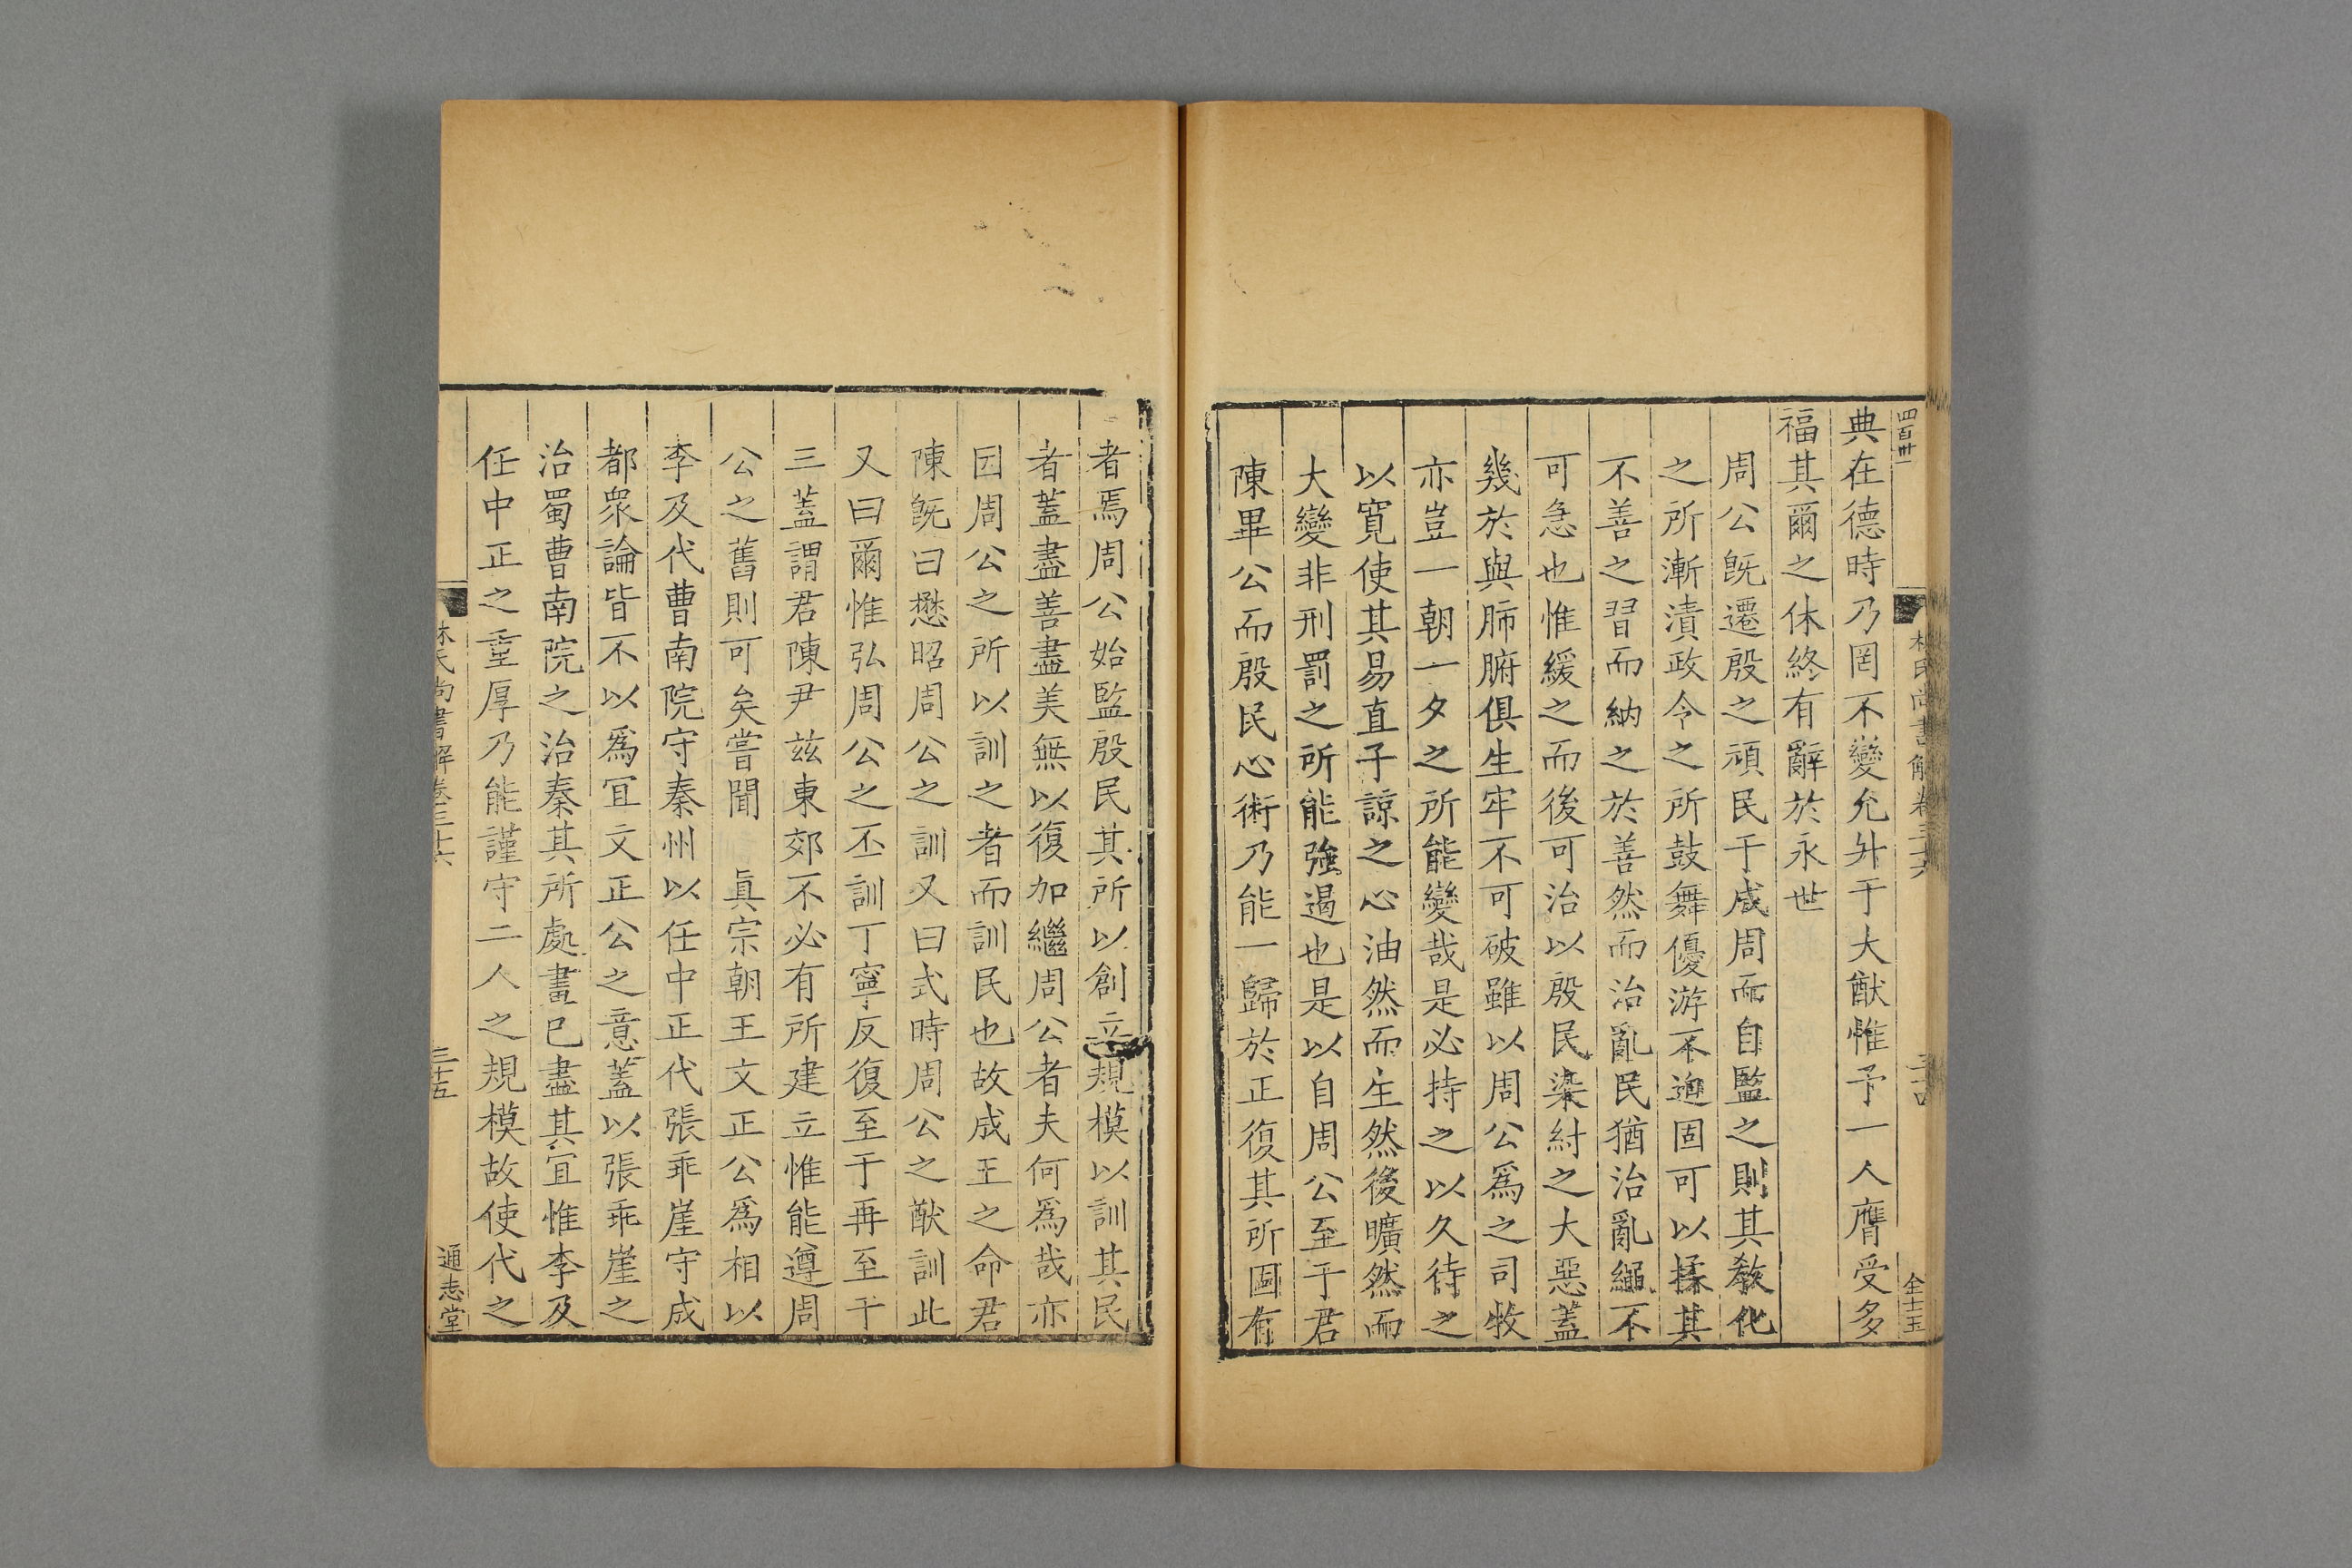 四百廿一
林氏尚書解卷三十六
三十四
全十玉
典在德時乃罔不變允升于大猷惟予一人膺受多
福其爾之休終有辭於永世
周公既遷殷之頑民于成周而自監之則其敎化
之所漸漬政令之所鼓舞優游不迫固可以揉其
不善之習而納之於善然而治亂民猶治亂繩不
可急也惟緩之而後可治以殷民染紂之大惡蓋
幾於與肺腑俱生牢不可破雖以周公爲之司牧
亦豈一朝一夕之所能變哉是必持之以久待之
以寬使其易直子諒之心油然而生然後曠然而
大變非刑罰之所能強遏也是以自周公至于君
陳畢公而殷民心術乃能一歸於正復其所固有
者焉周公始監殷民其所以創立規模以訓其民
者蓋盡善盡美無以復加繼周公者夫何爲哉亦
因周公之所以訓之者而訓民也故成王之命君
陳既曰懋昭周公之訓又曰式時周公之猷訓此
又曰爾惟弘周公之丕訓丁寧反復至于再至于
三蓋謂君陳尹兹東郊不必有所建立惟能遵周
公之舊則可矣嘗聞 眞宗朝王文正公爲相以
李及代曹南院守秦州以任中正代張乖崖守成
都衆論皆不以爲宜文正公之意蓋以張乖崖之
治蜀曹南院之治秦其所處畫已盡其宜惟李及
任中正之重厚乃能謹守二人之規模故使代之
林氏尚書解卷三十六
三十五
通志堂